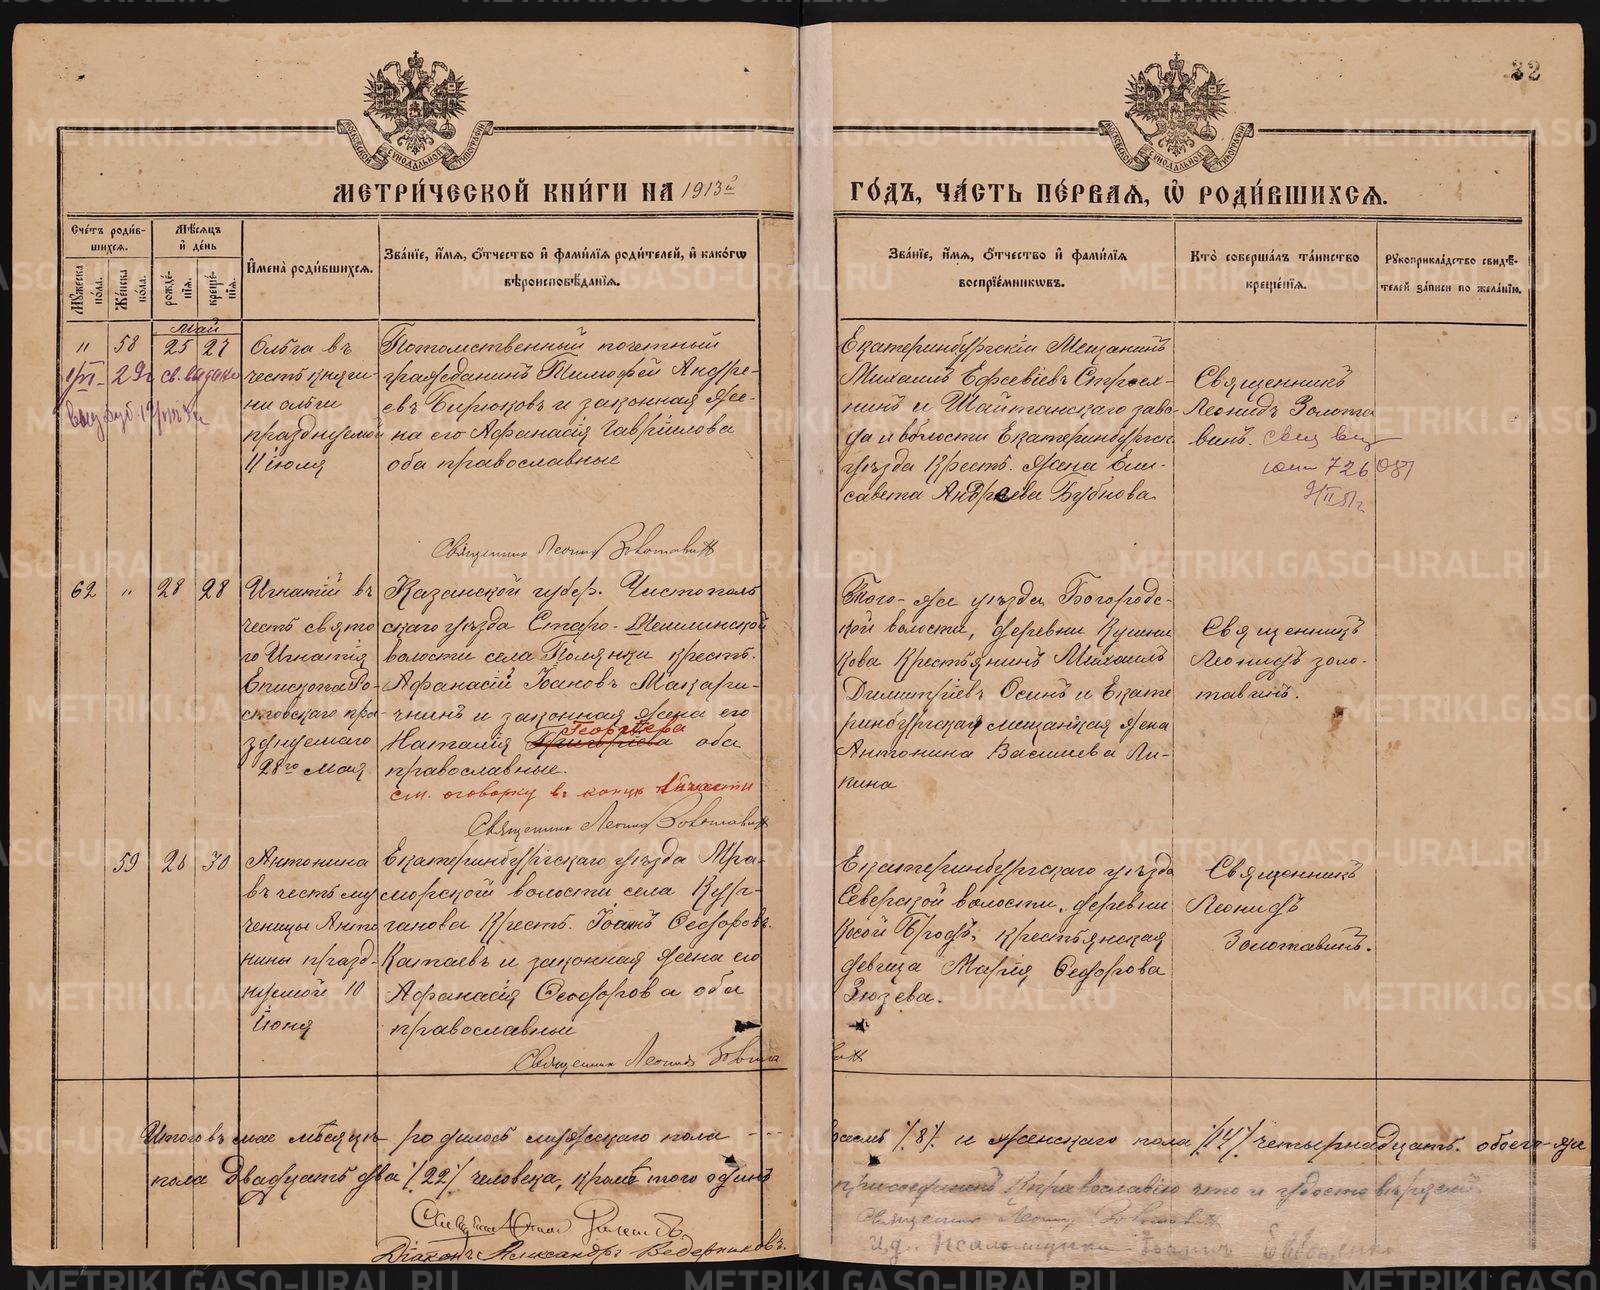 32
МОСКОВСКОЙ СѴНОДАЛЬНОЙ ТИПОГРАФІИ
МОСКОВСКОЙ СѴНОДАЛЬНОЙ ТИПОГРАФІИ
МЕТРИ́ЧЕСКОЙ КНИ́ГИ НА 1913й ГО́ДЪ, ЧА́СТЬ ПЕ́РВАЯ, Ѡ҆ РОДИ́ВШИХСЯ.
Сче́тъ роди́в-
шихся.
Мѣ́сяцъ
и҆ де́нь
Му́жеска по́ла.
Же́нска по́ла.
рожде́-
нїя.
креще́-
нїя.
И҆мена̀ роди́вшихся.
Зва́нїе, и҆́мя, ѻ҆́тчество и҆ фами́лїя роди́телей, и҆ како́гѡ
вѣроисповѣ́данїя.
Зва́нїе, и҆́мя, ѻ҆́тчество и҆ фами́лїя
воспрїе́мникѡвъ.
Кто̀ соверша́лъ та́инство
креще́нїя.
Рꙋкоприкла́дство свидѣ́-
телей за́писи по жела́нїю.
Май
" 58 25 27
Ольга въ
честь княги-
ни ольги
празднуемой
11 іюля
Потомственный почетный
гражданинъ Тимофей Андре-
евъ Бирюковъ и законная же-
на его Афанасія Гавриилова
оба православные
Священник Леонид Золотавин
Екатеринбургскій Мещанинъ
Михаилъ Ефсевіевъ Стрѣл-
нинъ и Шайтанскаго заво-
да и волости Екатеринбургск
уѣзда Крест. жена Ели-
савета Андреева Бубнова
Священникъ
Леонидъ Золота
винъ.
726081
62 " 28 28
Игнатій въ
честь свято
го Игнатія
Епископа Ро-
стовскаго пра
зднуемаго
28го мая
Казанской губер. Чистополь
скаго уѣзда Старо-
волости села Полянки крест.
Афанасій Іоановъ Макари-
чнинъ и законная жена его
Наталія Григоріева Георгіева оба
православные.
см. оговорку в концѣ 1й части
Священник Леонид Золотавин
Того-же уѣзда Богородс-
кой волости, деревни Кушни
кова Крестьянинъ Михаилъ
Димитріевъ Осинъ и Екате
ринбургская мещанская жена
Антонина Василиева Ли-
пина
Священникъ
Леонидъ золо-
тавинъ.
59 26 30
Антонина
въ честь му
ченицы Анто
нины празд-
нуемой 10
іюня
Екатеринбургскаго уѣзда Мра-
морской волости села Кур-
ганова Крест. Іоанъ Феодоровъ
Катаевъ и законная жена его
Афанасія Феодорова оба
православные
Священник Леонид Золота
вин
Екатеринбургскаго уѣзда
Северской волости, деревни
Косой Бродъ, крестьянская
девица Марія Феодорова
Зюзева.
Священникъ
Леонидъ
Золотавинъ.
Итого въ мае мѣсяцѣ родилось мужескаго пола --- восемь /8/ и женскаго пола /14/ четырнадцать. обоего-же
пола Двадцать два /22/ человека, кромѣ того одинъ присоединенъ к православію что и удостовѣряемъ.
Священник Леонид Золотавин
Діаконъ Александръ Ведерниковъ.
И.д. Псаломщика Іоаннъ